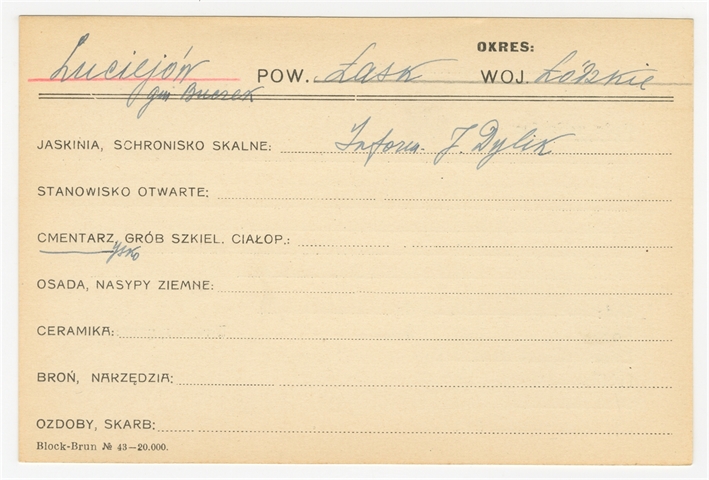 OKRES:
Luciejów POW. Łask WOJ. Łódzkie
gm Buczek
JASKINIA, SCHRONISKO SKALNE: Inform. J. Dylik
STANOWISKO OTWARTE:
CMENTARZ, GRÓB SZKIEL. CIAŁOP.:
ysko
OSADA, NASYPY ZIEMNE:
CERAMIKA:
BROŃ, NARZĘDZIA:
OZDOBY, SKARB:
Block-Brun № 43—20.000.